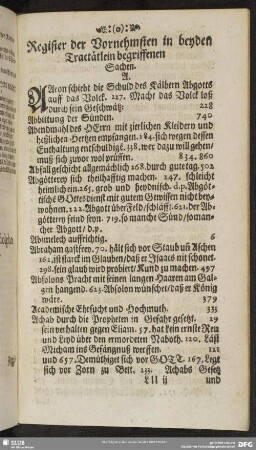 :(o):
Register der Vornehmsten in beyden
Tractätlein begriffenen
Sachen.
A.
AAron schiebt die Schuld des Kälbern Abgotts
auff das Volck. 127. Macht das Volck loß
durch sein Geschwätz: 228
Abbittung der Sünden. 740
Abendmahl des HErrn mit zierlichen Kleidern und
heßlichen Hertzen empfangen. 184. sich wegen dessen
Enthaltung entschuldigt. 338. wer dazu will gehen/
muß sich zuvor wol prüffen. 834. 860
Abfallgeschicht allgemächlich 168. durch gute tag. 502
Abgötterey sich theilhafftig machen. 247. schleicht
heimlich ein. 265. grob und heydnisch. d.p. Abgöt-
tische GOttes dienst mit gutem Gewissen nicht bey-
wohnen. 222. Abgott über Feld/schläfft. 621. der Ab-
götterey feind seyn. 719. so manche Sünd/so man-
cher Abgott/ d.p.
Abimelech auffrichtig. 6
Abraham gastfrey. 70. hält sich vor Staub uñ Aschen
162. ist starck im Glauben/daß er Isaacs nit schonet.
298. sein glaub wird probiert/Kund zu machen. 497
Absolons Pracht mit seinen langen Haaren am Gal-
gen hangend. 623. Absolon wünschet/daß er König
wäre. 379
Academische Ehrsucht und Hochmuth. 335
Achab durch die Propheten in Gefahr gesetzt. 29
sein verhalten gegen Eliam. 57. hat kein ernste Reu
und Leyd über den ermordeten Naboth. 120. Läst
Micham ins Gefängnuß werffen. 121
und 657. Demüthiget sich vor GOTT. 167. Legt
sich vor Zorn zu Bett. 233. Achabs Gesetz
Lll ij und
SLUB